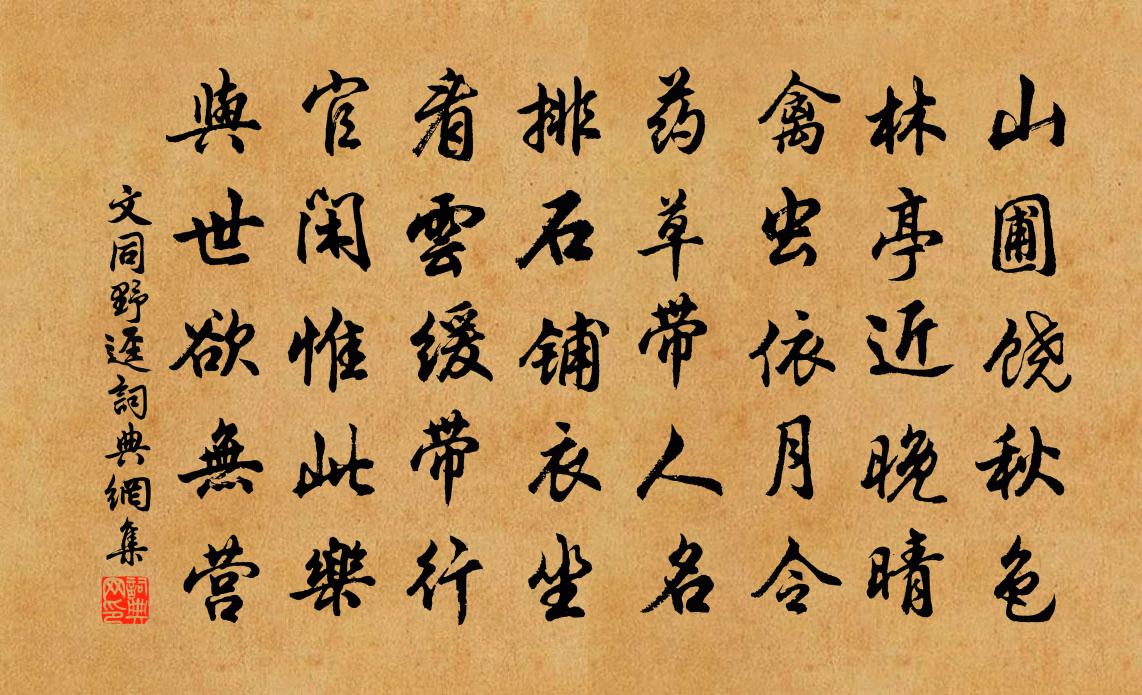 山圃饶秋色
林亭近晚晴
禽虫依月令
药草带人名
排石铺衣坐
看雲缓带行
官闲惟此樂
與世欲無营
文同野逕詞典網集
詞典网印